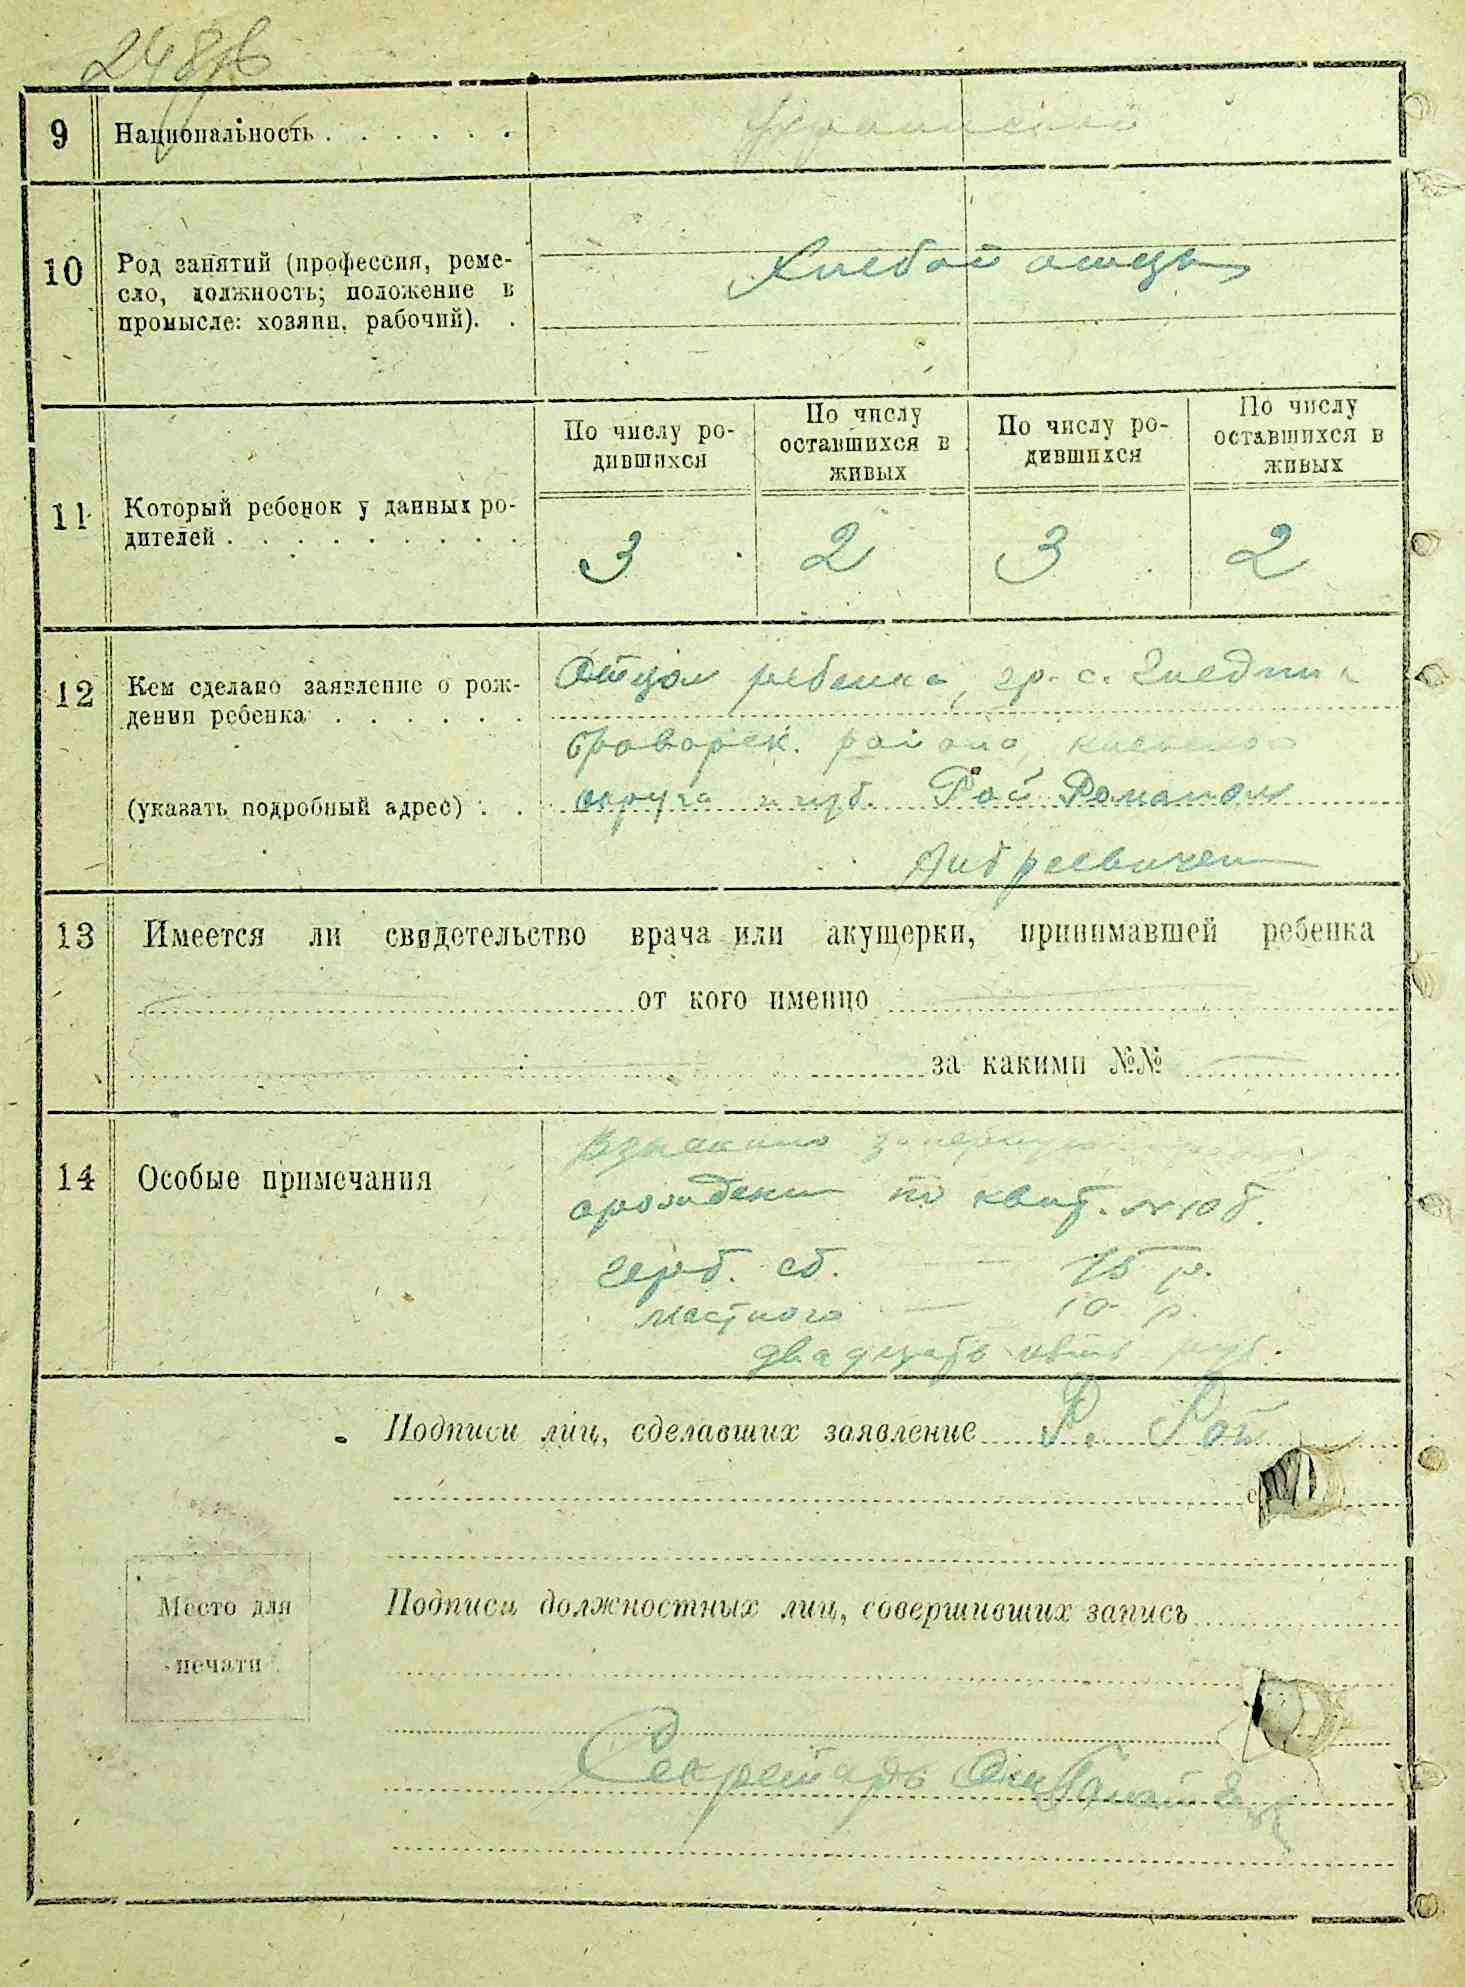 9 Национальность . . . . . .
10 Род занятий (профессия, реме-
сло, должность; положение в
промысле: хозяин, рабочий). .
Хлебопашец
По числу ро-
дившихся
По числу
оставшихся в
живых
По числу ро-
дившихся
По числу
оставшихся в
живых
11 Который ребенок у данных ро-
дителей . . . . . . . . .
3 2 3 2
12 Кем сделано заявление о рож-
дения ребенка . . . . . .
(указать подробный адрес) . .
Отцом ребенка, гр. с.
броварск. района, киевской
округа и губ. Рой Романом
Андреевичем
13 Имеется ли свидетельство врача или акушерки, принимавшей ребенка
от кого именно
за какими №№
14 Особые примечания
Взыскано
по квит. №
герб. сб. — 15 р.
местного — 10 р.
двадцать пять руб.
Подписи лиц, сделавших заявление Р. Рой
Подписи должностных лиц, совершивших запись
Место для
печати
Секретарь